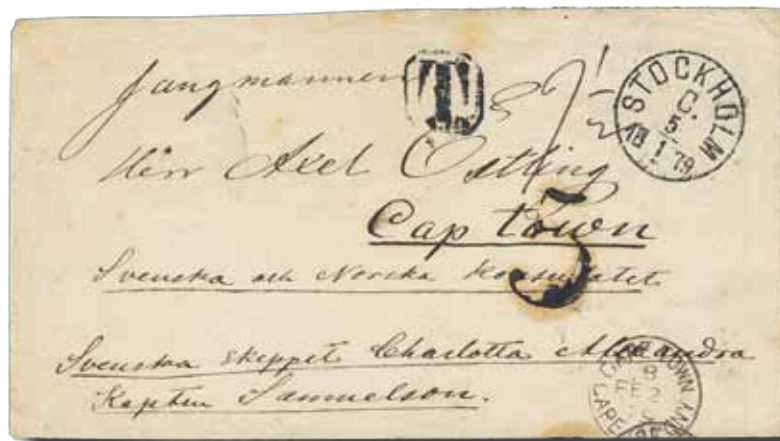 Jungmannen
T
STOCKHOLM
C.
5
18 1 79
Herr Axel Östling
Cap town
3
Svenska och Norska Konsulatet
Svenska skeppet Charlotta Alexandra
Kapten Samuelson.
CAPE TOWN
FE 2
CAPE